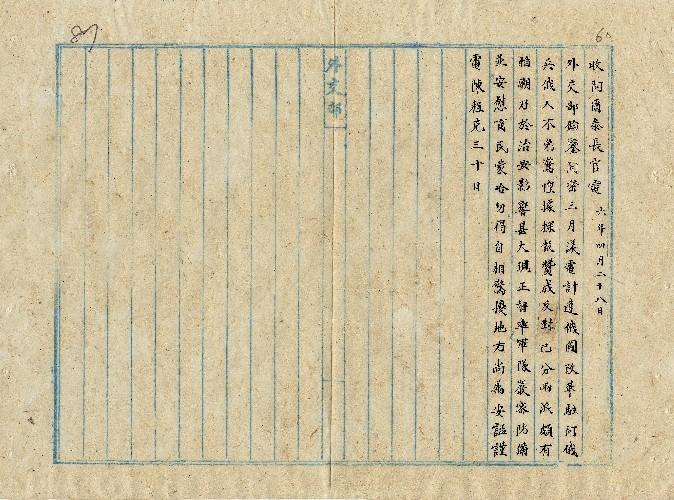 收阿爾泰長官電 六年四月二十八日
外交部鈞鑒 三月漾電計達俄國改革駐阿俄
兵俄人不免驚惶據探報贊成反對已分兩派頗有
暗潮對於治安影響甚大現正督率軍隊嚴密防備
並安慰商民蒙哈勿得自相驚擾地方尚屬安謐謹
電陳程克三十日
外交部
60